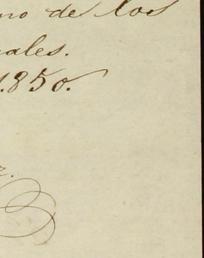 no de los
ales.
1850.